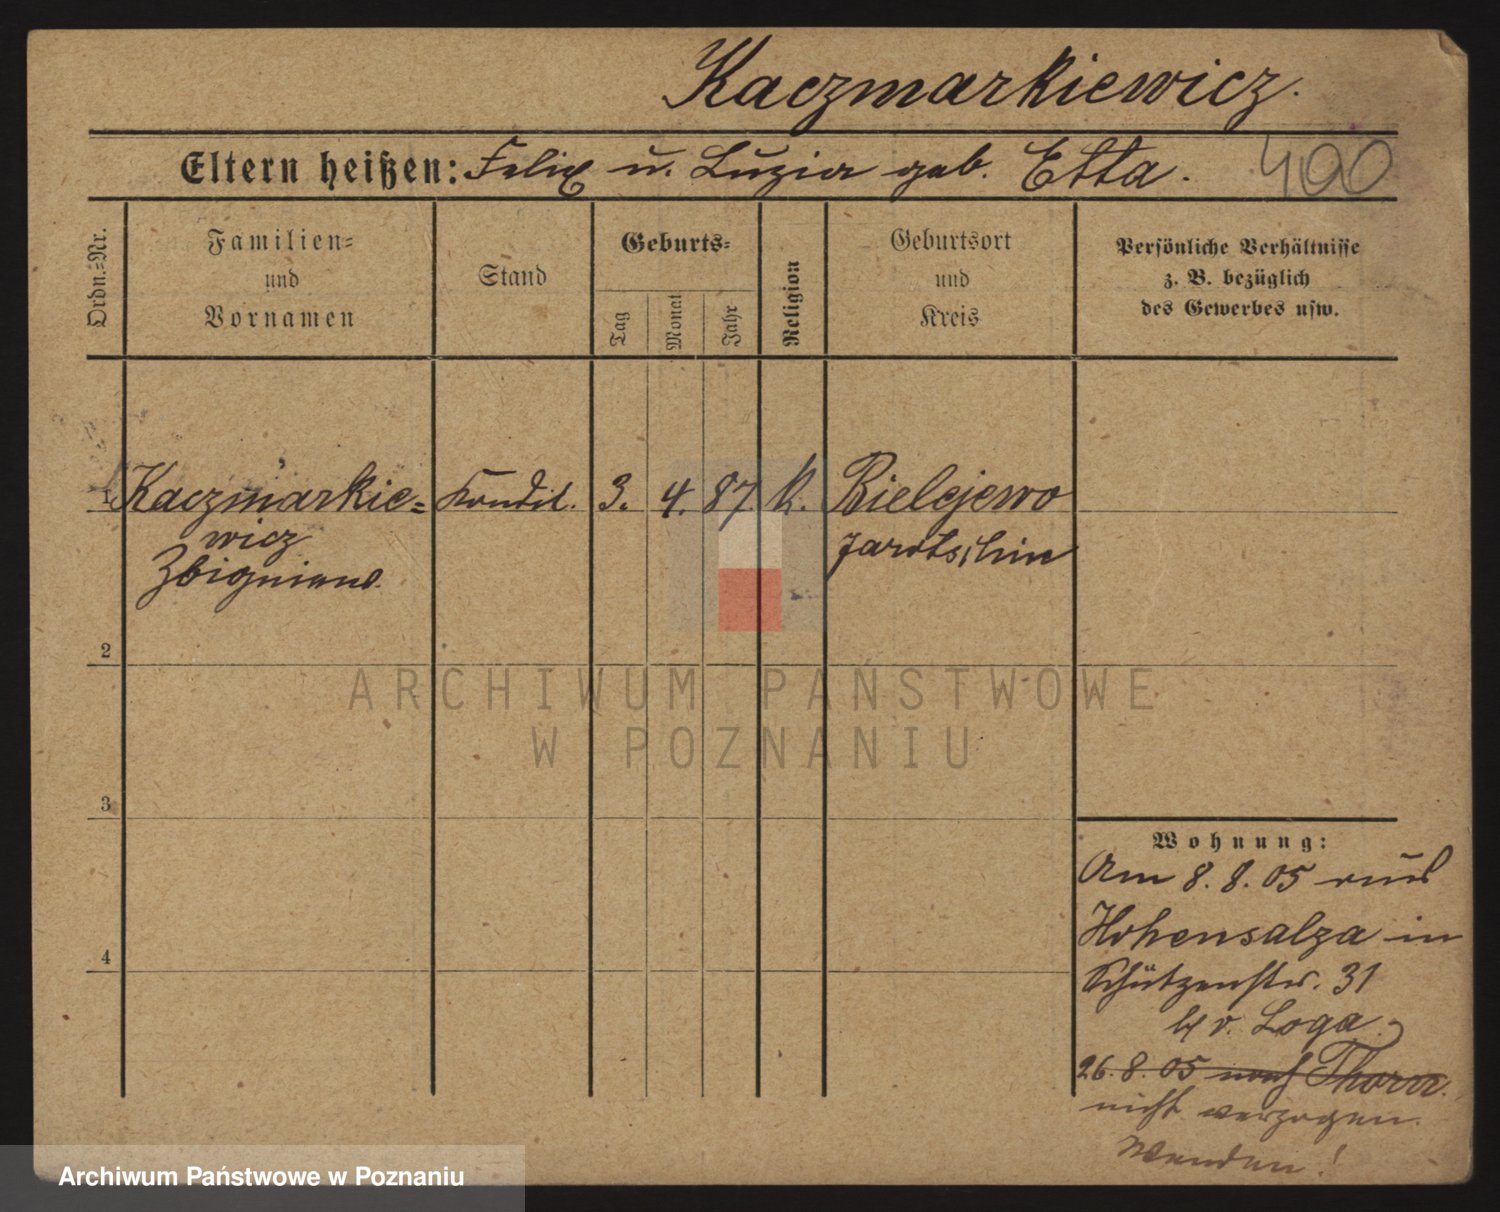 Kaczmarkiewicz.
Eltern heißen: Felix u. Luzia geb. Etta.
400
Ordn.=Nr.
Familien=
und
Vornamen
Stand
Geburts=
Tag
Monat
Jahr
Religion
Geburtsort
und
Kreis
Persönliche Verhältnisse
z. B. bezüglich
des Gewerbes usw.
1 Kaczmarkie= Kondit. 3. 4. 87. k. Bielejewo
wicz Jarotschin
Zbigniew
2
3
4
Wohnung:
Am 8. 8. 05 aus
Hohensalza in
Schützenstr. 31
b/ v. Loga.
26. 8. 05 nach Thorn.
nicht verzogen.
Wenden!
ARCHIWUM PAŃSTWOWE
W POZNANIU
Archiwum Państwowe w Poznaniu